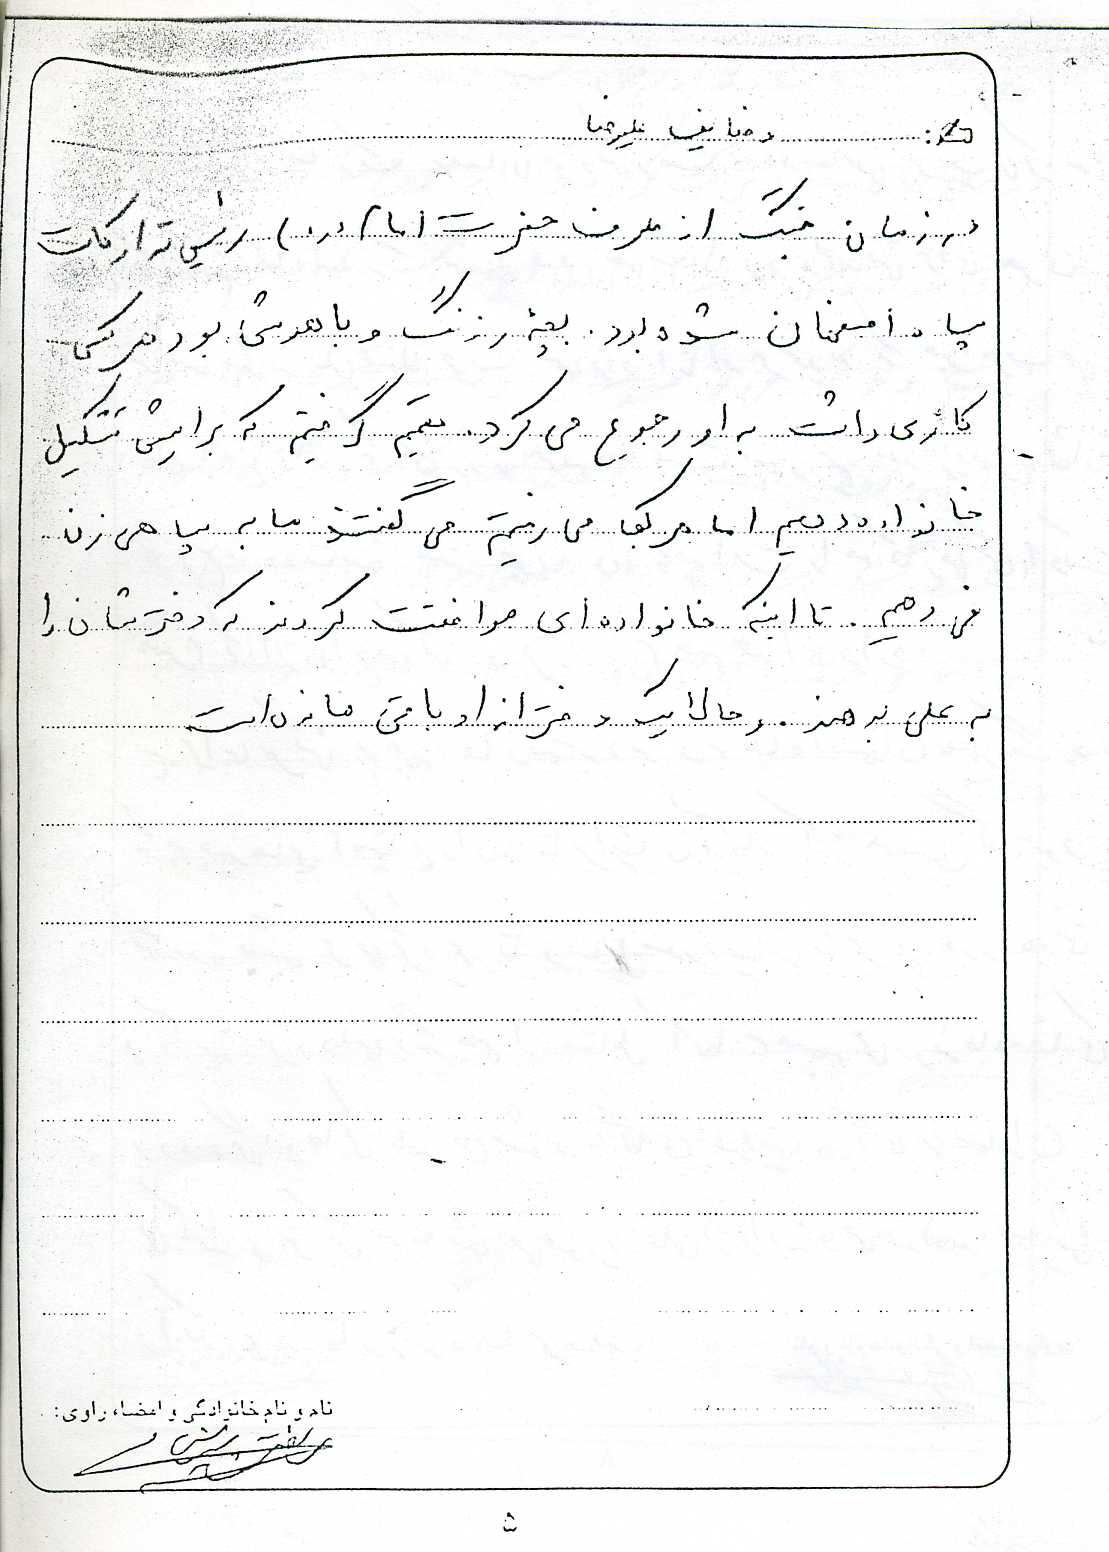 در زمان جنگ از طرف حضرت امام (ره) رئیس تدارکات
سپاه اصفهان شده بود. بچهٔ زرنگ و باهوشی بود هرکس
کاری داشت به او رجوع می کرد. تصمیم گرفتیم که برایش تشکیل
خانواده دهیم اما هر کجا می رفتیم می گفتند ما به سپاهی زن
نمی دهیم. تا اینکه خانواده ای موافقت کردند که دخترشان را
به علی بدهند. و حالا یک دختر از او باقی مانده است
نام و نام خانوادگی و امضاء راوی:
۵